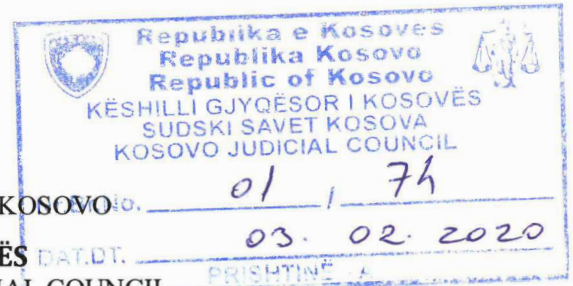 Republika e Kosovës
Republika Kosovo
Republic of Kosovo
KËSHILLI GJYQËSOR I KOSOVËS
SUDSKI SAVET KOSOVA
KOSOVO JUDICIAL COUNCIL
KOSOVO No. 01 / 74
ËS DAT.DT. 03. 02. 2020
IAL COUNCIL PRISHTINË